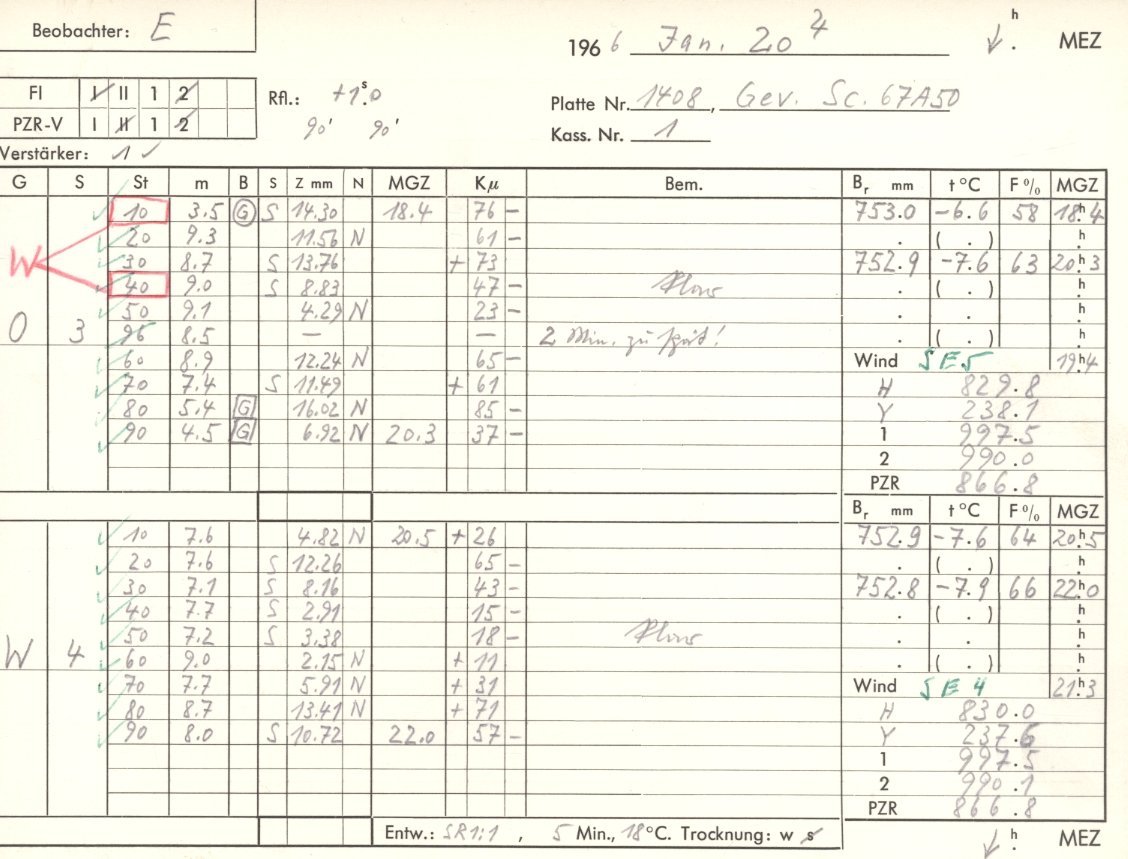 Beobachter: E
196 6 Jan. 20 ↓ h . MEZ
FI I II 1 2 Rfl.: +1.s0
Platte Nr. 1408, Gev. Sc. 67A50
PZR-V I II 1 2 90' 90'
Kass. Nr. 1
Verstärker: 1 ✓
G S St m B S Z mm N MGZ Kμ Bem. Br mm t °C F % MGZ
10 3.5 G S 14.30 18.4 76 – 753.0 -6.6 58 18h.4
20 9.3 11.56 N 61 – . ( . ) h.
W 30 8.7 S 13.76 + 73 752.9 -7.6 63 20h.3
40 9.0 S 8.83 47 – . ( . ) h.
50 9.1 4.29 N 23 – . . h.
O 3 96 8.5 — — 2 Min. zu spät! . ( . ) h.
60 8.9 12.24 N 65 – Wind SE 5 19h.4
70 7.4 S 11.49 + 61 H 829.8
80 5.4 G 16.02 N 85 – Y 238.1
90 4.5 G 6.92 N 20.3 37 – 1 997.5
2 990.0
PZR 866.8
Br mm t °C F % MGZ
10 7.6 4.82 N 20.5 + 26 752.9 -7.6 64 20h.5
20 7.6 S 12.26 65 – . ( . ) h.
30 7.1 S 8.16 43 – 752.8 -7.9 66 22h.0
40 7.7 S 2.91 15 – . ( . ) h.
50 7.2 S 3.38 18 – . . h.
W 4 60 9.0 2.15 N + 11 . ( . ) h.
70 7.7 5.91 N + 31 Wind SE 4 21h.3
80 8.7 13.41 N + 71 H 830.0
90 8.0 S 10.72 22.0 57 – Y 237.6
1 997.5
2 990.1
PZR 866.8
Entw.: SR1:1 , 5 Min., 18 °C. Trocknung: w s ↓ h . MEZ